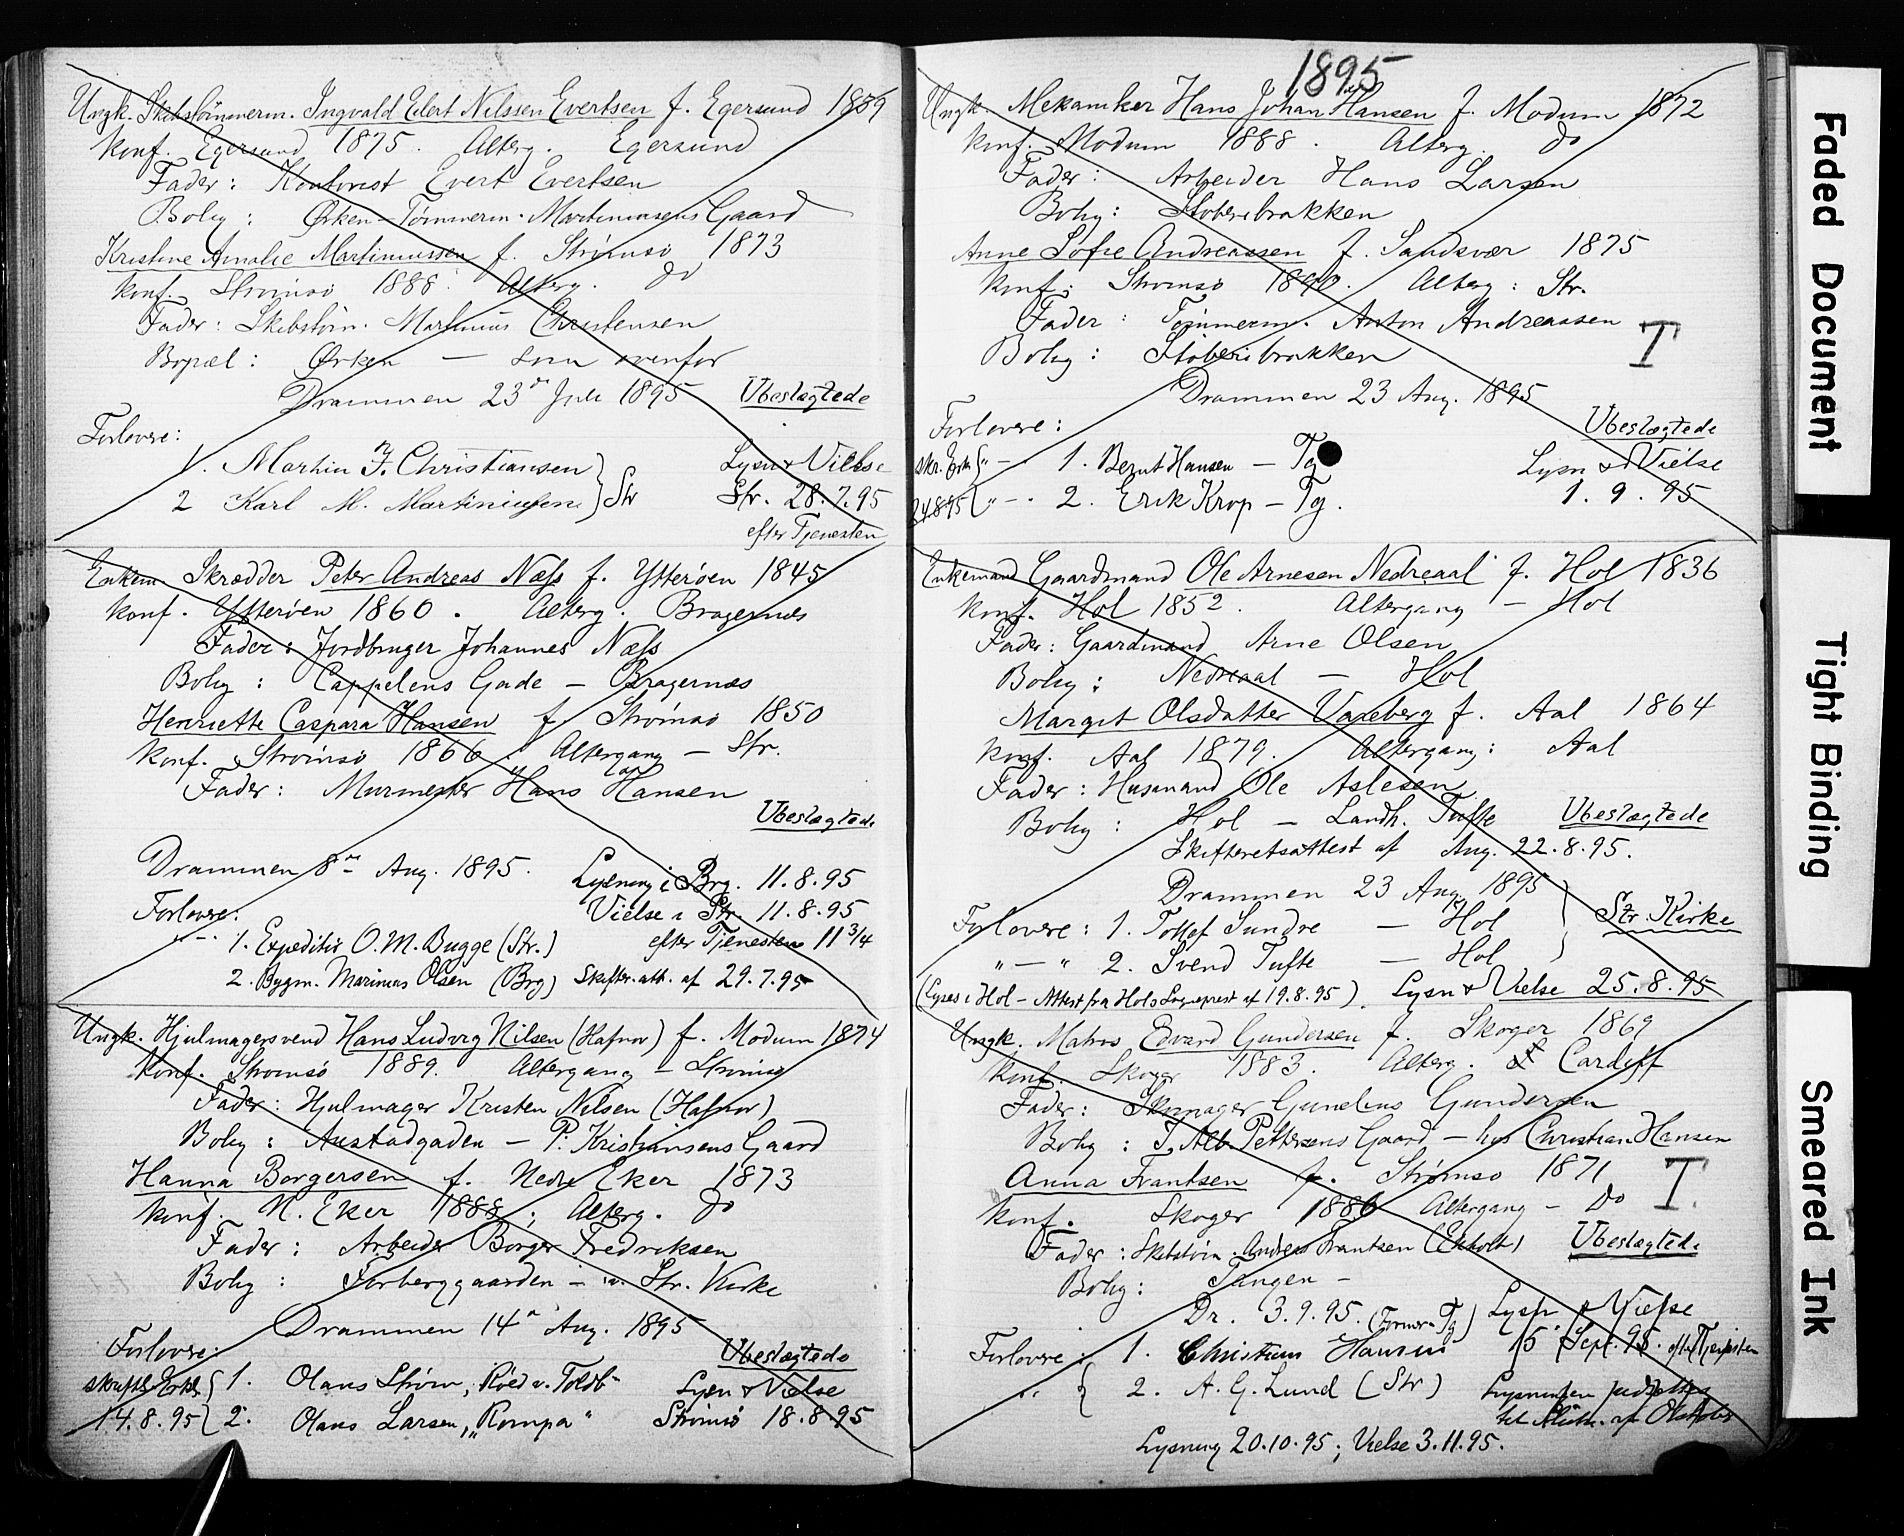 Ungk. Skibstømmerm. Ingvald Edert Nilssen Evertsen f. Egersund 1859
Konf. Egersund 1875. Alterg. Egersund
Fader: Kontorist Evert Evertsen
Bolig: Ørken - Tømmerm. Martiniusens Gaard
Kristine Amalie Martinussen f. Strømsø 1873
Konf. Strømsø 1888. Alterg. do
Fader: Skibstøm. Martinus Christensen
Bopæl: Ørken — som ovenfor
Drammen 23de Juli 1895 Ubeslægtede
Forlovere:
1. Martin J. Christiansen } Str
2 Karl M. Martiniussen
Lysn & Vielse
Str. 28.7.95
efter Tjenesten
Enkem Skrædder Peter Andreas Næss f. Ytterøen 1845
Konf. Ytterøen 1860. Alterg. Bragernæs
Fader: Jordbruger Johannes Næss
Bolig: Cappelens Gade — Bragernæs
Henriette Caspara Hansen f. Strømsø 1850
Konf. Strømsø 1866. Altergang — Str.
Fader: Murmester Hans Hansen
Ubeslægtede
Drammen 8de Aug. 1895. Lysning i Brg. 11.8.95
Forlovere: Vielse i Str. 11.8.95
efter Tjenesten 11 3/4
"—" 1. Expeditør O. M. Bugge (Str.)
2. Bygm. Marinius Olsen (Brg) Skifte.att. af 29.7.95
Ungk. Hjulmagersvend Hans Ludvig Nilsen (Hafnor) f. Modum 1874
Konf. Strømsø 1889. Altergang — Strømsø
Fader: Hjulmager Kristen Nilsen (Hafnor)
Bolig: Austadgaden — P. Kristiansens Gaard
Hanna Borgersen f. Nedre Eker 1873
Konf. N. Eker 1888; Alterg. do
Fader: Arbeider Borger Fredriksen
Bolig: Forberggaarden — v. Str. Kirke
Drammen 14de Aug. 1895
Forlovere: Ubeslægtede
skriftl. Erkl { 1. Olaus Strøm, Röed v. Toldb- Lysn & Vielse
14.8.95 { 2. Olaus Larsen, "Rompa" Strømsø 18.8.95
1895
Ungk. Mekaniker Hans Johan Hansen f. Modum 1872
Konf. Modum 1888. Alterg. do
Fader: Arbeider Hans Larsen
Bolig: Støberibrakken
Anne Sofie Andreassen f. Sandsvær 1875
Konf: Strømsø 1890. Alterg: Str.
Fader: Tømmerm. Anton Andreassen
T
Bolig: Støberibrakken
Drammen 23 Aug. 1895
Forlovere: Ubeslægtede
skr. Erkl { "— 1. Bernt Hansen — Tg Lysn & Vielse
24.8.95 { "— 2. Erik Krop — Tg. 1.9.95
Enkemand Gaardmand Ole Arnesen Nedreaal f. Hol 1836
Konf. Hol 1852. Altergang — Hol
Fader: Gaardmand Arne Olsen
Bolig: Nedreaal — Hol
Margit Olsdatter Vaxeberg f. Aal 1864
Konf. Aal 1879. Altergang: Aal
Fader: Husmand Ole Aslesen
Bolig: Hol — Landh. Tufte Ubeslægtede
Skifteretsattest af Aug. 22.8.95.
Drammen 23 Aug 1895
Str. Kirke
Forlovere: 1. Tollef Sundre — Hol
"—" 2. Svend Tufte — Hol
(Lyses i Hol — Attest fra Hols Sogneprest af 19.8.95). Lysn & Vielse 25.8.95
Ungk. Matros Edvard Gundersen f. Skoger 1869
Konf. Skoger 1883. Alterg. Cardiff
Fader: Skomager Gunelius Gundersen
Bolig: T. Alb. Pettersens Gaard — hos Christian Hansen
Anna Frantsen f. Strømsø 1871
T.
Konf. Skoger 1886 Altergang — do
Fader: Skibstøm. Anders Frantsen (Ekholt) Ubeslægtede
Bolig: Tangen —
Dr. 3.9.95. Lysn & Vielse
Forlovere: 1. Christian Hansen 15 Sept. 95. efter Tjenesten
" { 2. A. G. Lund (Str)
Lysning 20.10.95; Vielse 3.11.95.
Faded Document
Tight Binding
Smeared Ink